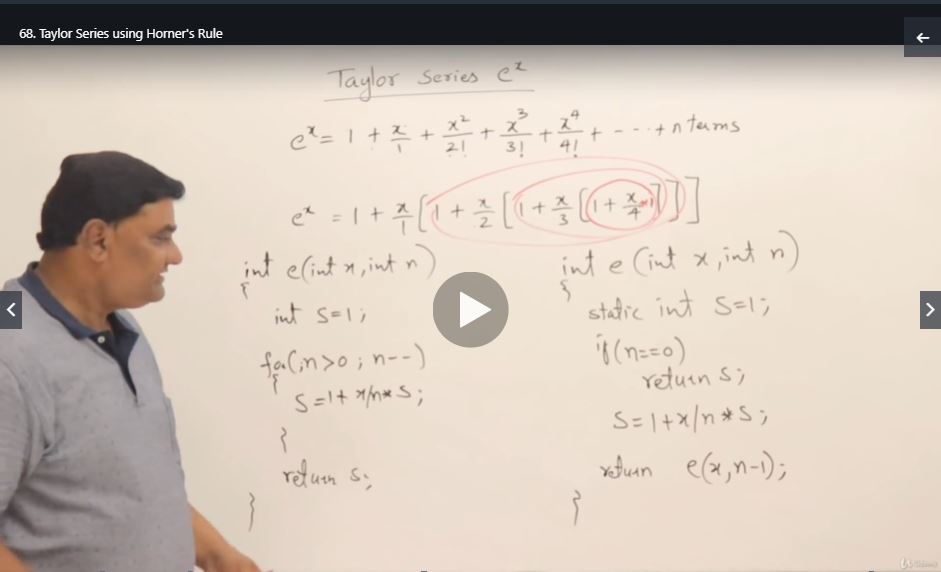 68. Taylor Series using Horner's Rule
Taylor Series e^x
e^x = 1 + x/1 + x²/2! + x³/3! + x⁴/4! + - - - + n terms
e^x = 1 + x/1 [1 + x/2 [1 + x/3 [1 + x/4 *1]]]]
int e(int x, int n)
{
int S=1;
for(;n>0; n--)
{
S=1+x/n*S;
}
return s;
}
int e(int x, int n)
{
static int S=1;
if(n==0)
return S;
S=1+x/n*S;
return e(x,n-1);
}
Udemy